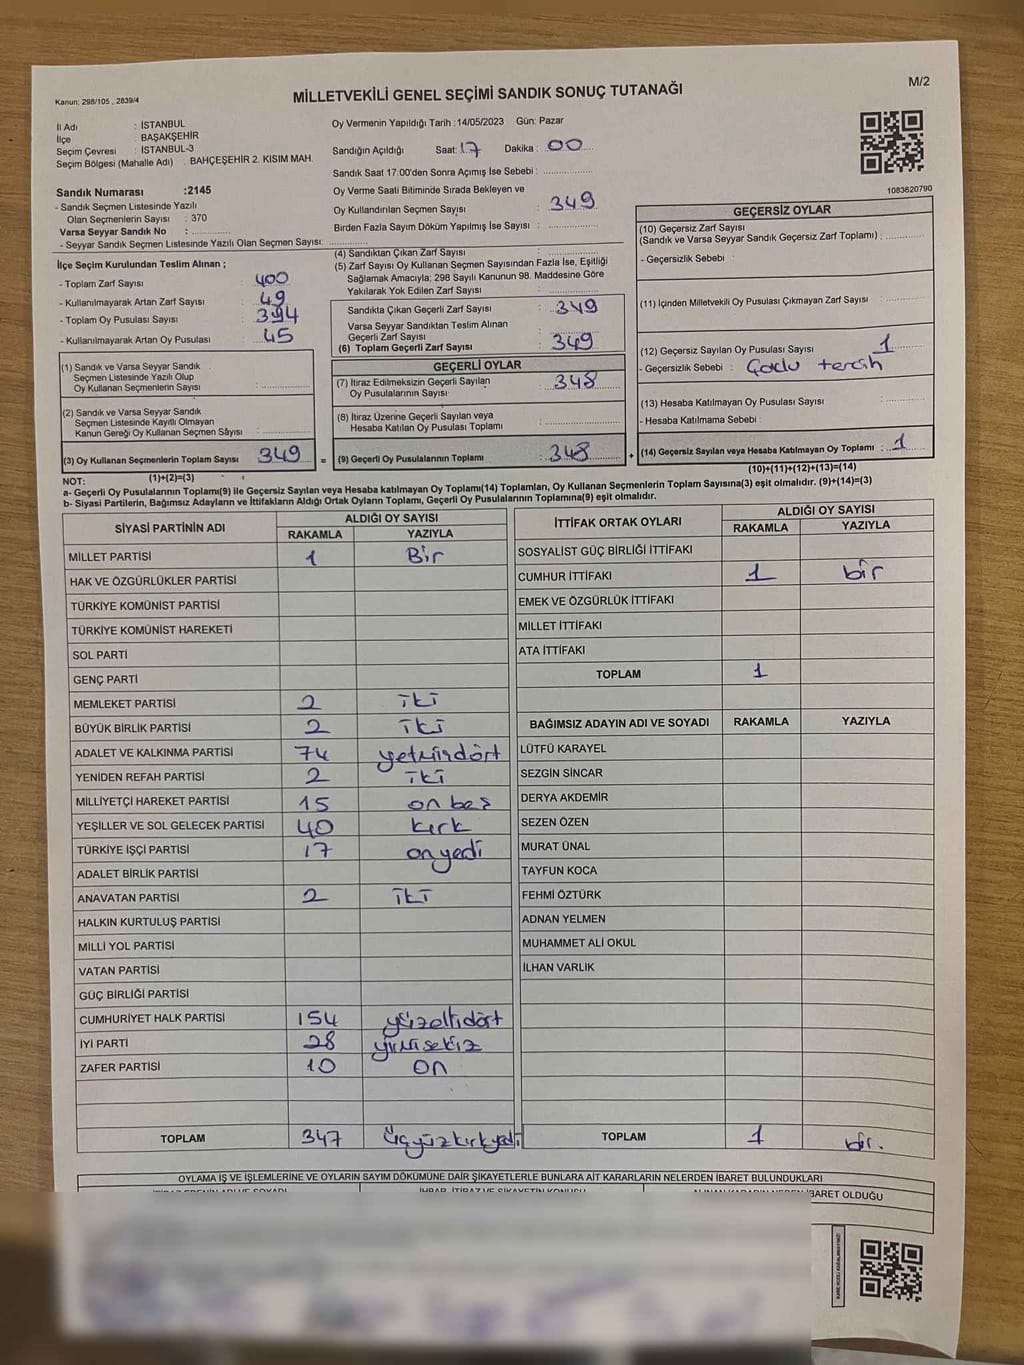 Kanun: 298/105 , 2839/4
MİLLETVEKİLİ GENEL SEÇİMİ SANDIK SONUÇ TUTANAĞI
M/2
İl Adı : İSTANBUL
İlçe : BAŞAKŞEHİR
Seçim Çevresi : İSTANBUL-3
Seçim Bölgesi (Mahalle Adı) : BAHÇEŞEHİR 2. KISIM MAH.
Oy Vermenin Yapıldığı Tarih :14/05/2023 Gün: Pazar
Sandığın Açıldığı Saat: 17 Dakika : 00
Sandık Saat 17.00'den Sonra Açımış İse Sebebi :
Sandık Numarası :2145
- Sandık Seçmen Listesinde Yazılı
Olan Seçmenlerin Sayısı : 370
Varsa Seyyar Sandık No :
- Seyyar Sandık Seçmen Listesinde Yazılı Olan Seçmen Sayısı:
Oy Verme Saati Bitiminde Sırada Bekleyen ve
Oy Kullandırılan Seçmen Sayısı : 349
Birden Fazla Sayım Döküm Yapılmış İse Sayısı :
1083620790
İlçe Seçim Kurulundan Teslim Alınan ;
- Toplam Zarf Sayısı : 400
- Kullanılmayarak Artan Zarf Sayısı : 49
- Toplam Oy Pusulası Sayısı : 394
- Kullanılmayarak Artan Oy Pusulası : 45
(1) Sandık ve Varsa Seyyar Sandık
Seçmen Listesinde Yazılı Olup
Oy Kullanan Seçmenlerin Sayısı :
(2) Sandık ve Varsa Seyyar Sandık
Seçmen Listesinde Kayıtlı Olmayan
Kanun Gereği Oy Kullanan Seçmen Sayısı :
(3) Oy Kullanan Seçmenlerin Toplam Sayısı : 349
(1)+(2)=(3)
(4) Sandıktan Çıkan Zarf Sayısı :
(5) Zarf Sayısı Oy Kullanan Seçmen Sayısından Fazla İse, Eşitliği
Sağlamak Amacıyla; 298 Sayılı Kanunun 98. Maddesine Göre
Yakılarak Yok Edilen Zarf Sayısı :
Sandıkta Çıkan Geçerli Zarf Sayısı : 349
Varsa Seyyar Sandıktan Teslim Alınan
Geçerli Zarf Sayısı :
(6) Toplam Geçerli Zarf Sayısı : 349
GEÇERLİ OYLAR
(7) İtiraz Edilmeksizin Geçerli Sayılan
Oy Pusulalarının Sayısı : 348
(8) İtiraz Üzerine Geçerli Sayılan veya
Hesaba Katılan Oy Pusulası Toplamı :
= (9) Geçerli Oy Pusulalarının Toplamı : 348
GEÇERSİZ OYLAR
(10) Geçersiz Zarf Sayısı
(Sandık ve Varsa Seyyar Sandık Geçersiz Zarf Toplamı) :
- Geçersizlik Sebebi :
(11) İçinden Milletvekili Oy Pusulası Çıkmayan Zarf Sayısı :
(12) Geçersiz Sayılan Oy Pusulası Sayısı : 1
- Geçersizlik Sebebi : Çoklu tercih
(13) Hesaba Katılmayan Oy Pusulası Sayısı :
- Hesaba Katılmama Sebebi :
+ (14) Geçersiz Sayılan veya Hesaba Katılmayan Oy Toplamı : 1
(10)+(11)+(12)+(13)=(14)
NOT:
a- Geçerli Oy Pusulalarının Toplamı(9) ile Geçersiz Sayılan veya Hesaba Katılmayan Oy Toplamı(14) Toplamları, Oy Kullanan Seçmenlerin Toplam Sayısına(3) eşit olmalıdır. (9)+(14)=(3)
b- Siyasi Partilerin, Bağımsız Adayların ve İttifakların Aldığı Ortak Oyların Toplamı, Geçerli Oy Pusulalarının Toplamına(9) eşit olmalıdır.
SİYASİ PARTİNİN ADI ALDIĞI OY SAYISI
RAKAMLA YAZIYLA
MİLLET PARTİSİ 1 Bir
HAK VE ÖZGÜRLÜKLER PARTİSİ
TÜRKİYE KOMÜNİST PARTİSİ
TÜRKİYE KOMÜNİST HAREKETİ
SOL PARTİ
GENÇ PARTİ
MEMLEKET PARTİSİ 2 iki
BÜYÜK BİRLİK PARTİSİ 2 iki
ADALET VE KALKINMA PARTİSİ 74 yetmişdört
YENİDEN REFAH PARTİSİ 2 iki
MİLLİYETÇİ HAREKET PARTİSİ 15 on beş
YEŞİLLER VE SOL GELECEK PARTİSİ 40 kırk
TÜRKİYE İŞÇİ PARTİSİ 17 onyedi
ADALET BİRLİK PARTİSİ
ANAVATAN PARTİSİ 2 iki
HALKIN KURTULUŞ PARTİSİ
MİLLİ YOL PARTİSİ
VATAN PARTİSİ
GÜÇ BİRLİĞİ PARTİSİ
CUMHURİYET HALK PARTİSİ 154 yüzellidört
İYİ PARTİ 28 yirmisekiz
ZAFER PARTİSİ 10 on
TOPLAM 347 üçyüzkırkyedi
İTTİFAK ORTAK OYLARI ALDIĞI OY SAYISI
RAKAMLA YAZIYLA
SOSYALİST GÜÇ BİRLİĞİ İTTİFAKI
CUMHUR İTTİFAKI 1 bir
EMEK VE ÖZGÜRLÜK İTTİFAKI
MİLLET İTTİFAKI
ATA İTTİFAKI
TOPLAM 1
BAĞIMSIZ ADAYIN ADI VE SOYADI RAKAMLA YAZIYLA
LÜTFÜ KARAYEL
SEZGİN SİNCAR
DERYA AKDEMİR
SEZEN ÖZEN
MURAT ÜNAL
TAYFUN KOCA
FEHMİ ÖZTÜRK
ADNAN YELMEN
MUHAMMET ALİ OKUL
İLHAN VARLIK
TOPLAM 1 bir.
OYLAMA İŞ VE İŞLEMLERİNE VE OYLARIN SAYIM DÖKÜMÜNE DAİR ŞİKAYETLERLE BUNLARA AİT KARARLARIN NELERDEN İBARET BULUNDUKLARI
İBARET OLDUĞU